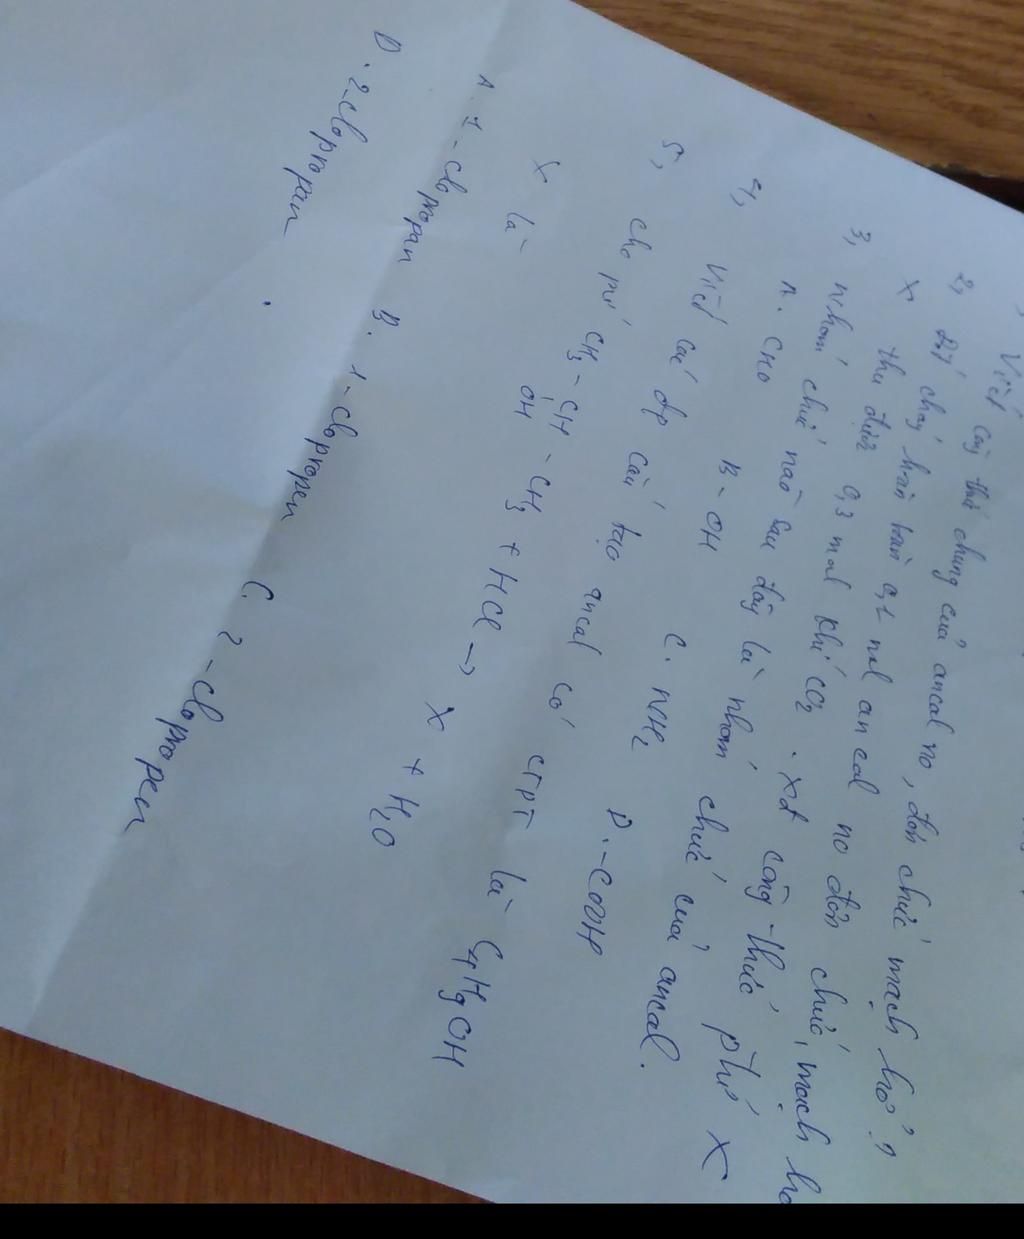 Viết công thức chung của ancal no, đơn chức mạch hở?
2, Đốt cháy hoàn toàn 0,1 mol ancal no đơn chức, mạch hở
X thu được 0,3 mol khí CO2. Xđ công thức ptử X
3, Nhóm chức nào sau đây là nhóm chức của ancal.
A. CHO B - OH C. NH2 D. -COOH
4, Viết các đp cấu tạo ancal có CTPT là C4H9OH
5, Cho pứ CH3 - CH - CH3 + HCl → X + H2O
OH
X là
A. 1-Clopropan B. 1-Clopropen C. 2-Clopropen
D. 2-Clopropan.